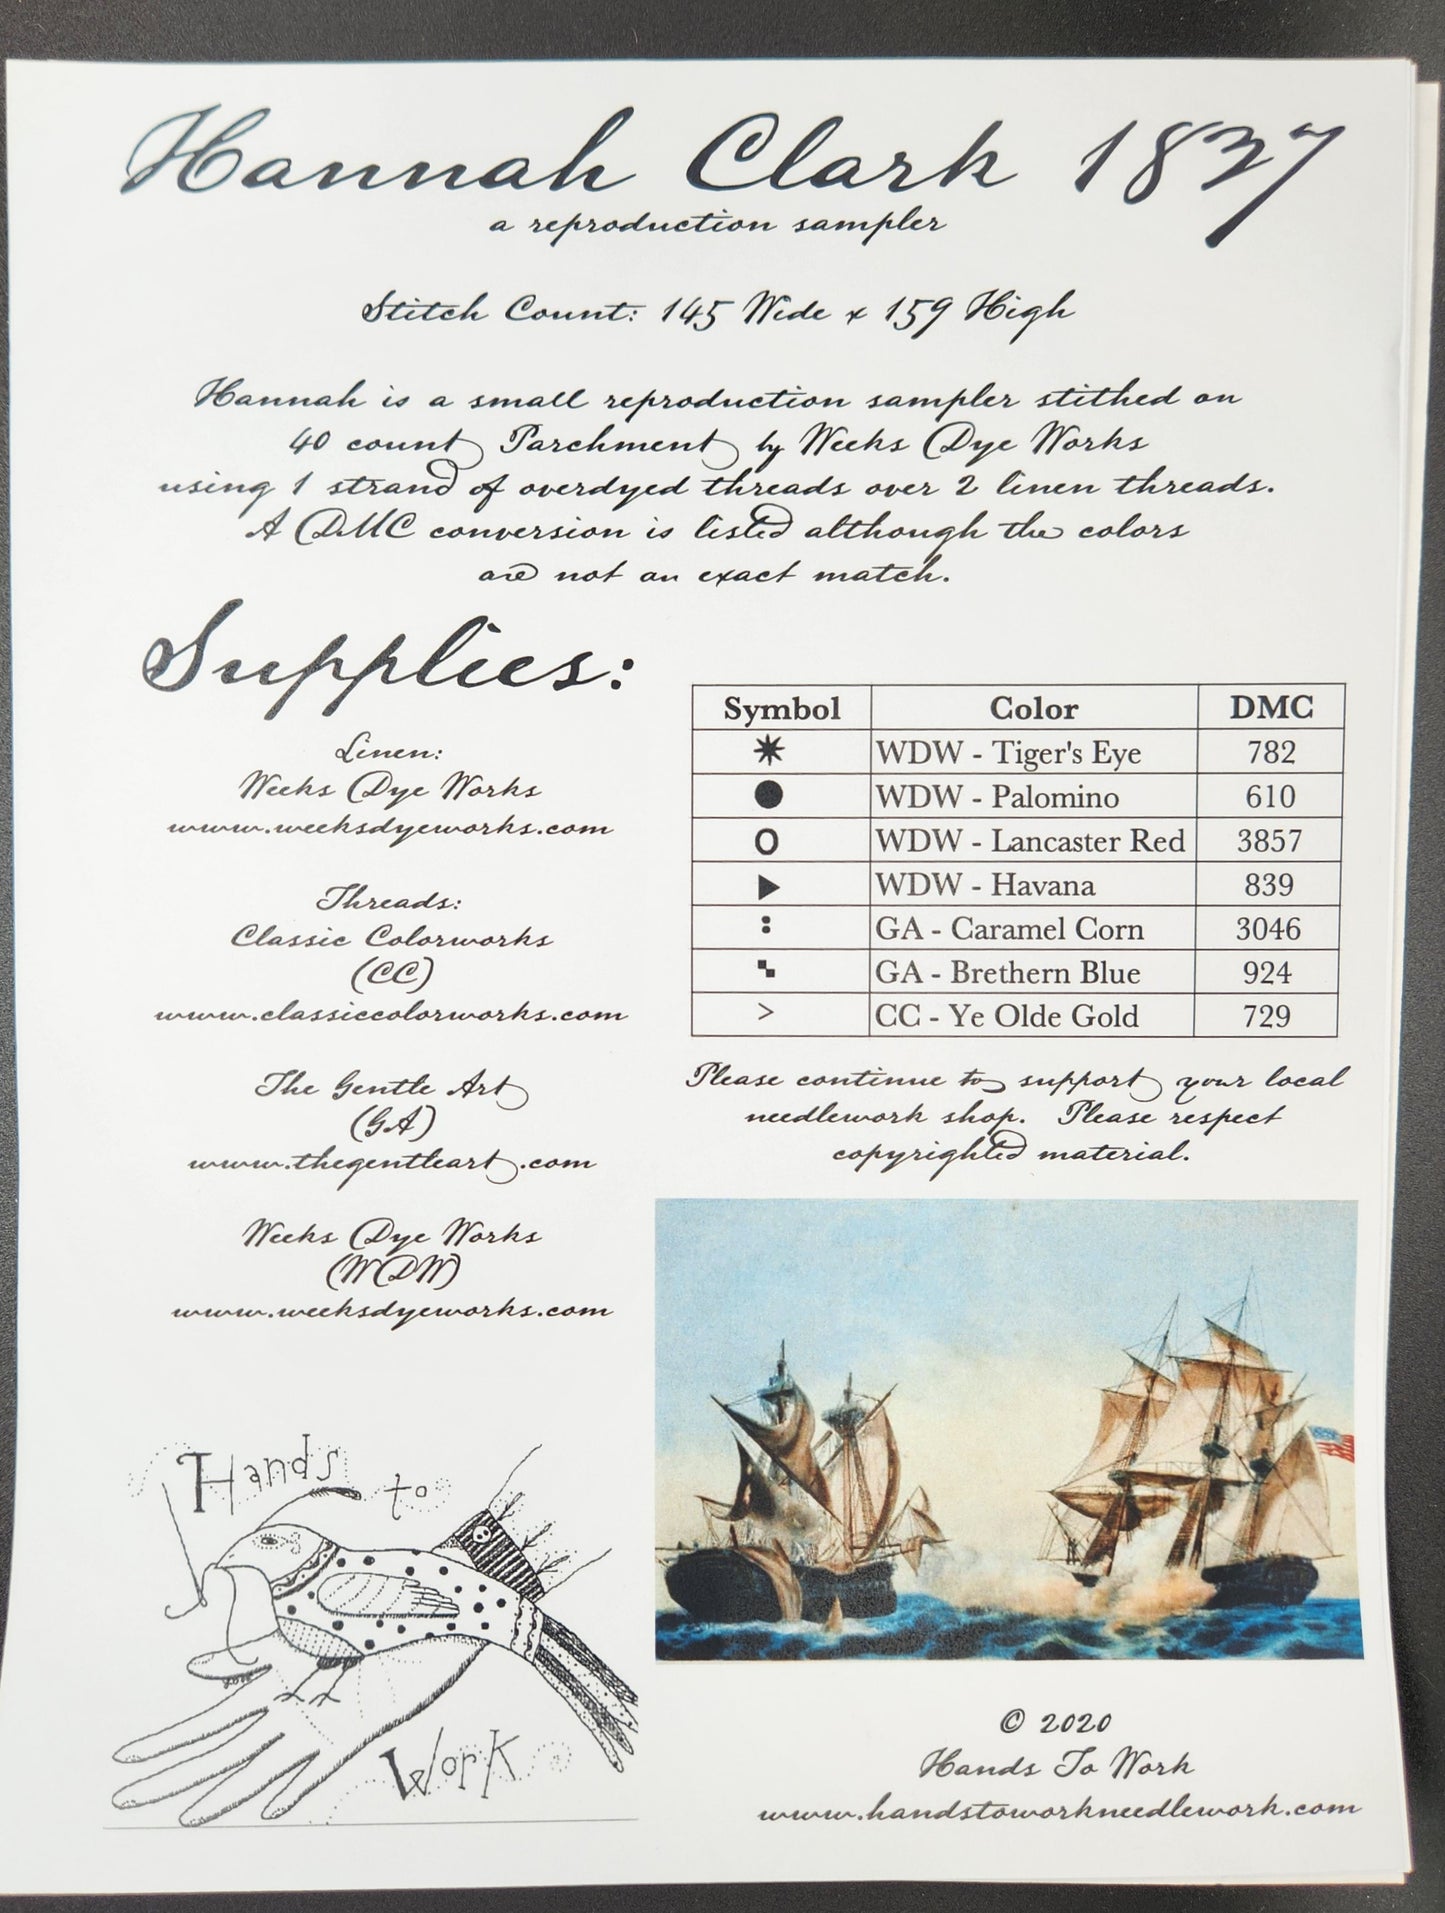 Hannah Clark 1837
a reproduction sampler
Stitch Count: 145 Wide x 159 High
Hannah is a small reproduction sampler stithed on
40 count Parchment by Weeks Dye Works
using 1 strand of overdyed threads over 2 linen threads.
A DMC conversion is listed although the colors
are not an exact match.
Supplies:
Linen:
Weeks Dye Works
www.weeksdyeworks.com
Threads:
Classic Colorworks
(CC)
www.classiccolorworks.com
The Gentle Art
(GA)
www.thegentleart.com
Weeks Dye Works
(WDW)
www.weeksdyeworks.com
Symbol Color DMC
✷ WDW - Tiger's Eye 782
● WDW - Palomino 610
O WDW - Lancaster Red 3857
▶ WDW - Havana 839
: GA - Caramel Corn 3046
▚ GA - Brethern Blue 924
> CC - Ye Olde Gold 729
Please continue to support your local
needlework shop. Please respect
copyrighted material.
Hands to
Work
© 2020
Hands To Work
www.handstoworkneedlework.com